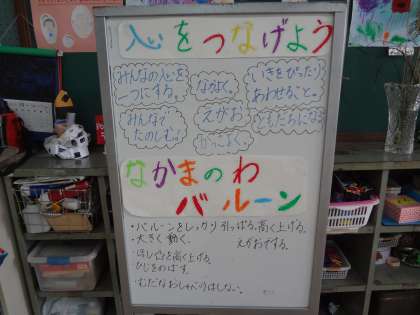 心をつなげよう
みんなの心を
一つにする。
なかよく。
いきをぴったり
あわせること。
みんなで
たのしむ。
えがお
ともだちになる
かっこよく。
なかまのわ
バルーン
・バルーンをしっかり引っぱる。高く上げる。
・大きく動く。 えがおでする。
・ほし☆を高く上げる。
ひじをのばす。
・むだなおしゃべりはしない。